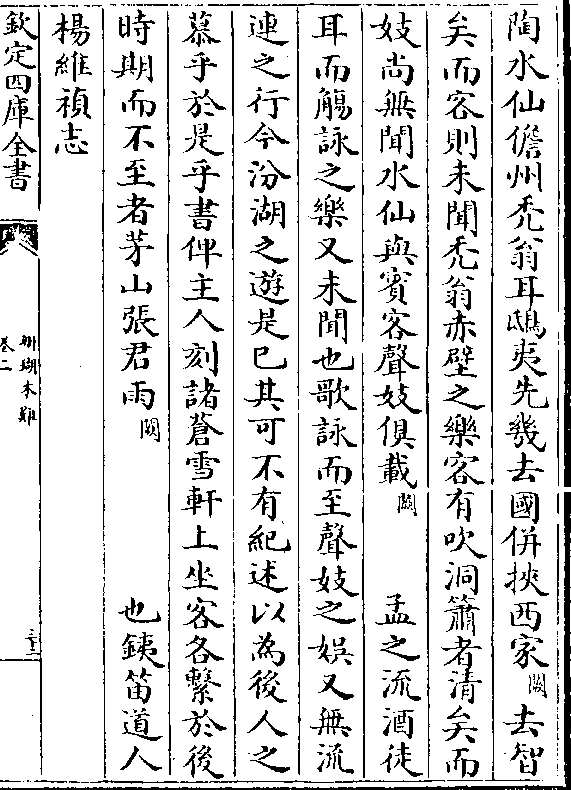 陶水仙儋州禿翁耳鴟夷先幾去國併挾西家闕去智
矣而客則未聞禿翁赤壁之樂客有吹洞簫者清矣而
妓尚無聞水仙與賓客聲妓俱載闕孟之流酒徒
耳而觴詠之樂又未聞也歌詠而至聲妓之娛又無流
連之行今汾湖之遊是已其可不有紀述以為後人之
慕乎於是乎書俾主人刻諸蒼雪軒上坐客各繫於後
時期而不至者茅山張君雨闕也銕笛道人
楊維禎志
欽定四庫全書
珊瑚木難
卷二